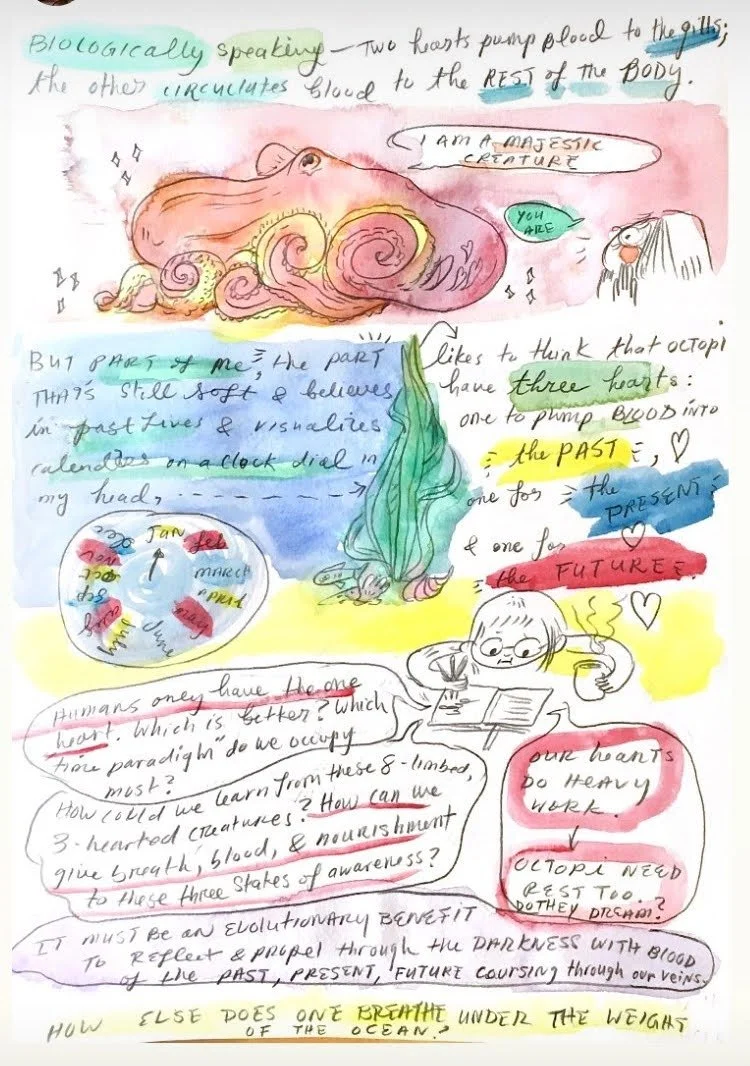 BIOLOGICALLY SPEAKING — TWO hearts pump blood to the gills;
the other circulates blood to the REST of the BODY.
I AM A MAJESTIC
CREATURE
YOU
ARE
BUT PART of me, the PART
THAT'S still soft & believes
in past lives & visualizes
calendars on a clock dial in
my head,
likes to think that octopi
have three hearts:
one to pump BLOOD INTO
the PAST,
one for the
PRESENT
& one for
the FUTURE.
JAN
feb
MARCH
APRIL
may
June
July
aug
Sep
oct
nov
dec
Humans only have the one
heart. Which is better? Which
"time paradigm" do we occupy
most?
How could we learn from these 8-limbed,
3-hearted creatures? How can we
give breath, blood, & nourishment
to these three states of awareness?
OUR hearts
DO HEAVY
WORK.
OCTOPI NEED
REST TOO.
DO THEY DREAM?
IT MUST BE AN EVOLUTIONARY BENEFIT
TO REFLECT & PROPEL through the DARKNESS WITH BLOOD
of the PAST, PRESENT, FUTURE COURSING through our veins.
HOW ELSE DOES ONE BREATHE UNDER THE WEIGHT
OF THE OCEAN?